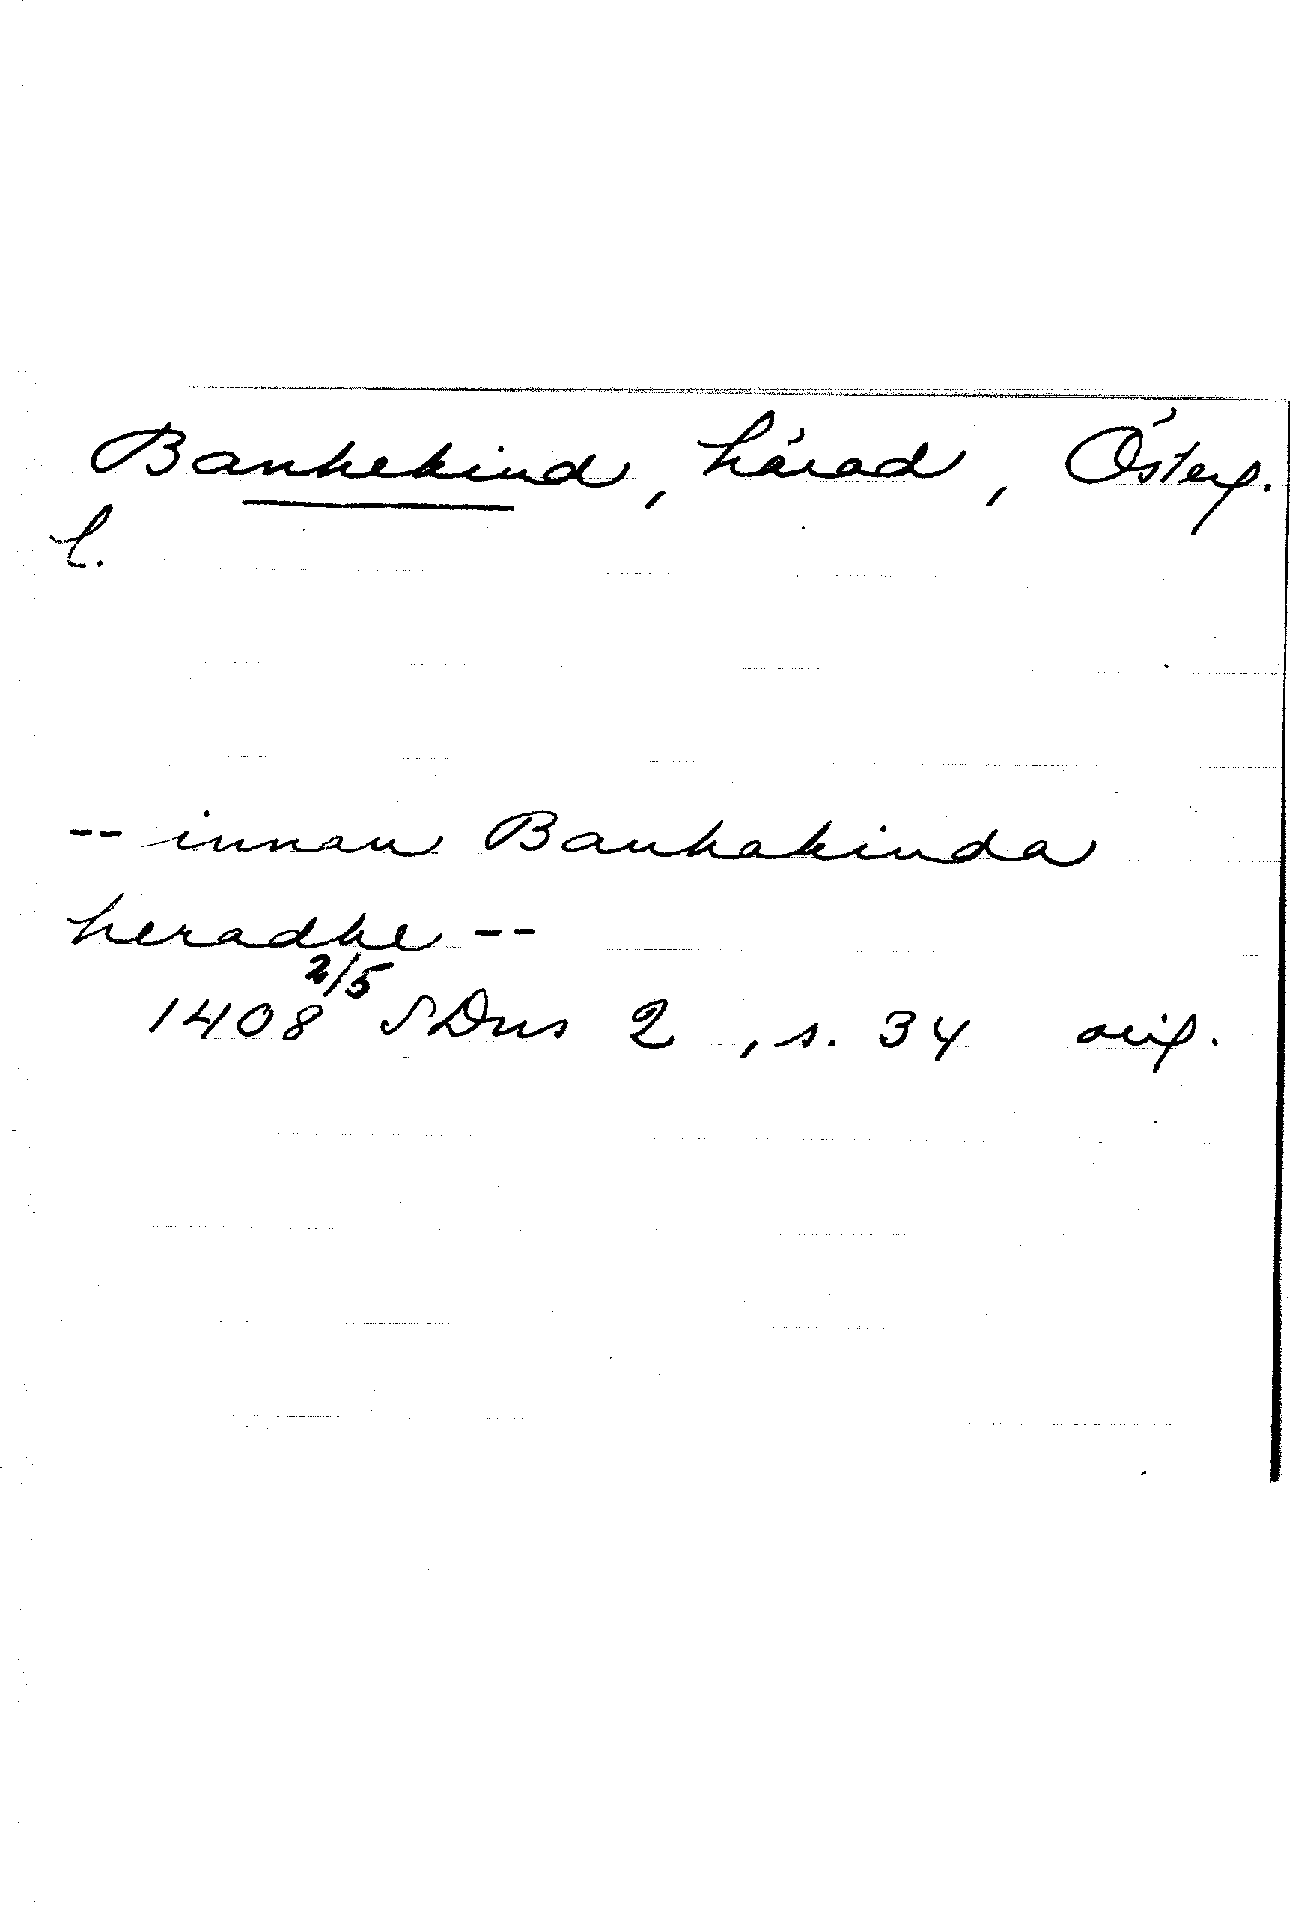 Bankekind, härad, Österg.
l.
-- innan Bankakinda
heradhe --
1408 2/5 SDns 2, s. 34 orig.